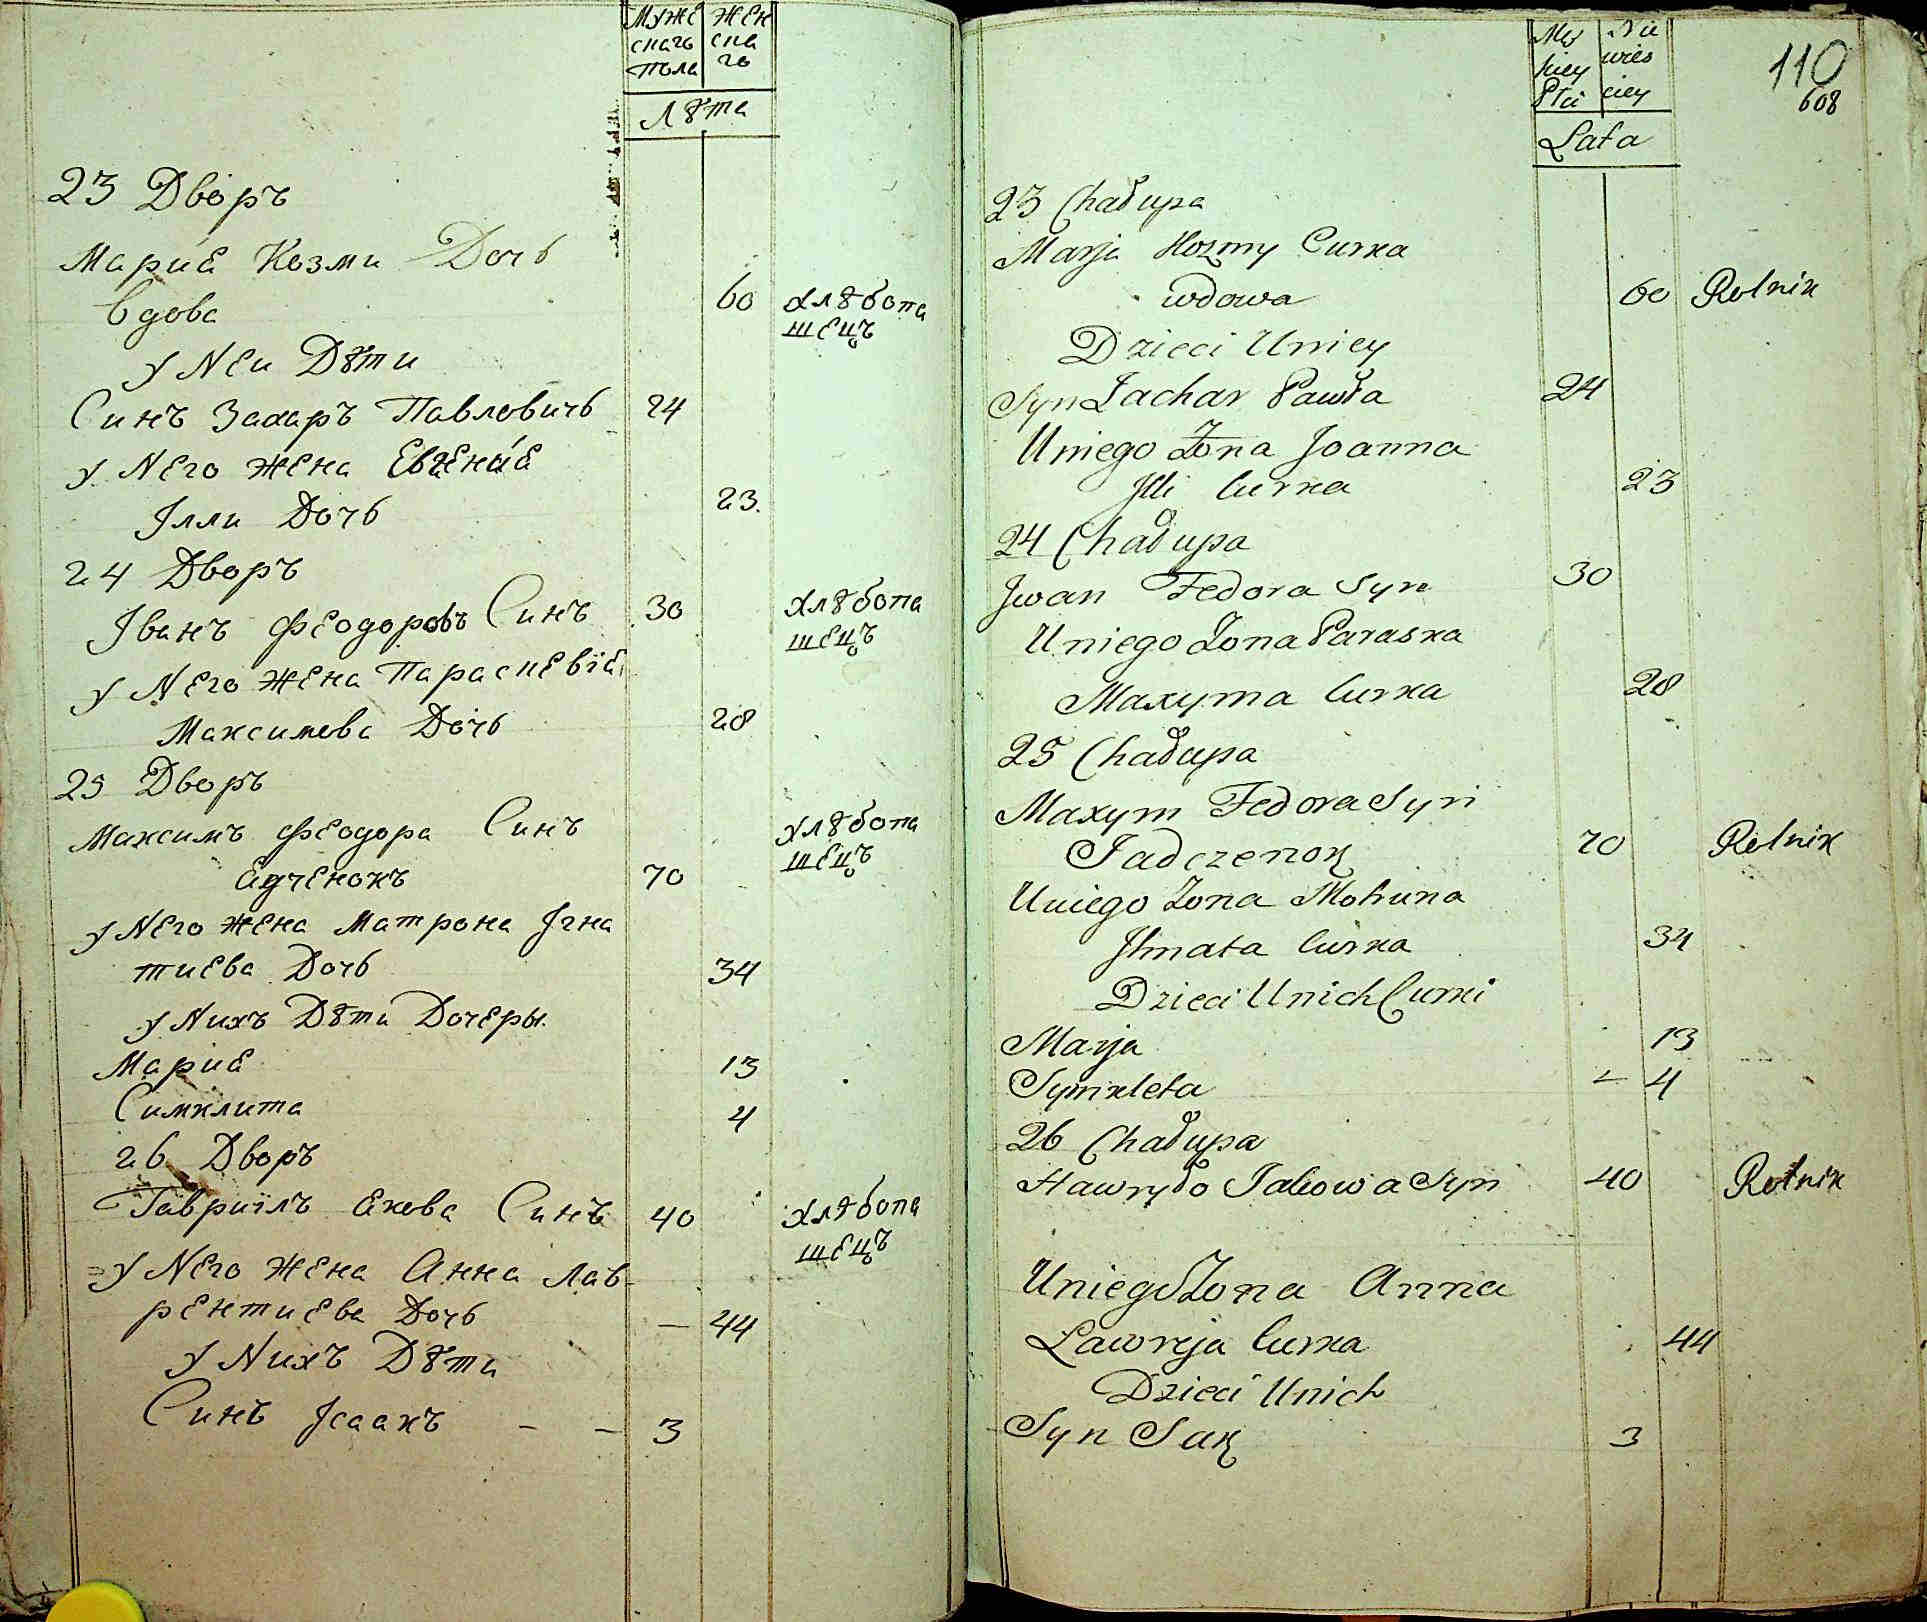 Муже жен
скагъ ска
пола го
Лѣта
23 Дворъ
Мариѧ Козми Дочь
Вдова 60 хлѣбопа
шецъ
у Неи Дѣти
Синъ Захаръ Павловичь 24
у Него жена Евгениѧ
Iлли Дочь 23.
24 Дворъ
Iванъ Феодоровъ Синъ 30 хлѣбопа
шецъ
у Него жена Параскевїѧ
Максимова Дочь 28
25 Дворъ
Максимъ Феодора Синъ хлѣбопа
шецъ
Ѧдченокъ 70
у Него жена Матрона Iгна
тиева Дочь 34
у Нихъ Дѣти Дочеры.
Мариѧ 13
Симклита 4
26 Дворъ
Гавриїлъ Ѧкова Синъ 40 хлѣбопа
шецъ
у Него жена Анна Лав-
рентиева Дочь — 44
у Нихъ Дѣти
Синъ Iсаакъ — — 3
110
608
Mę Nie
skiey wies
Płci ciey
Lata
23 Chałupa
Marja Kozmy Curka
wdowa 60 Rolnik
Dzieci Uniey
Syn Zachar Pawła 24
Uniego Żona Joanna
Illi Curka 23
24 Chałupa
Jwan Fedora Syn 30
Uniego Żona Paraska
Maxyma Curka 28
25 Chałupa
Maxym Fedora Syn
Jadczenok 70 Rolnik
Uniego Żona Motruna
Ihnata Curka 34
Dzieci Unich Curki
Marja 13
Symkleta – 4
26 Chałupa
Hawryło Jakowa Syn 40 Rolnik
Uniego Żona Anna
Ławreja Curka 44
Dzieci Unich
Syn Sak 3